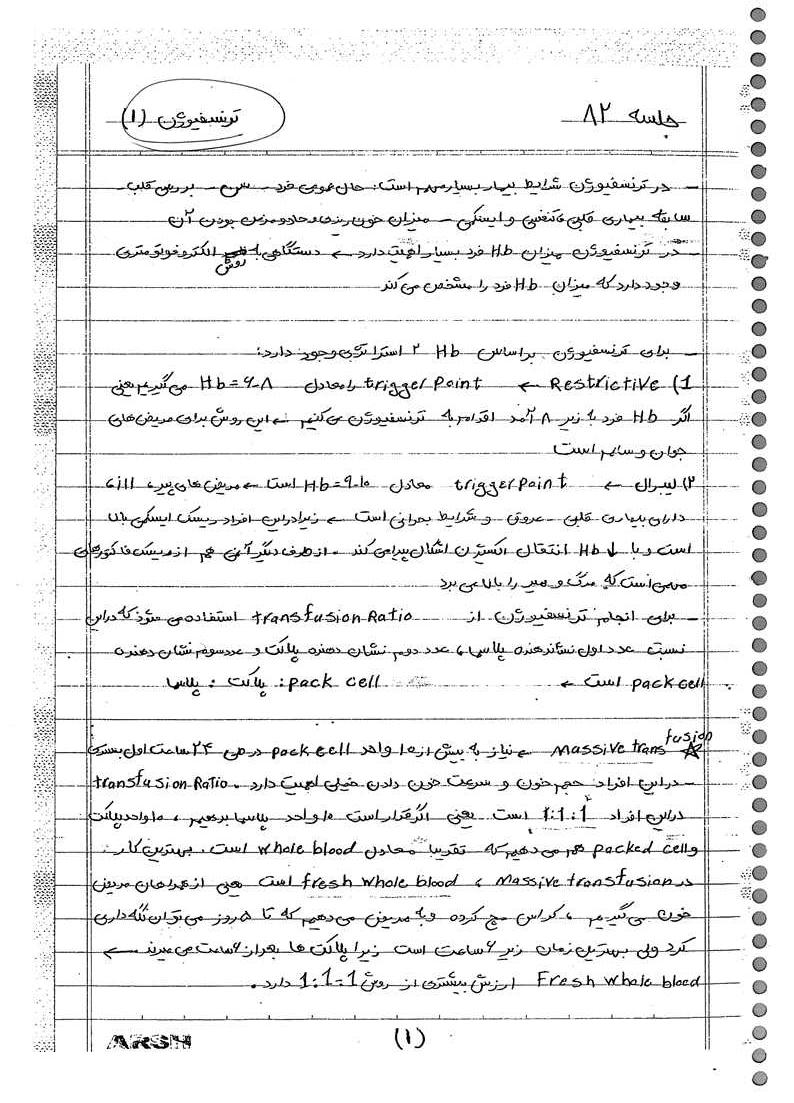 جلسه ۸۲
ترنسفیوژن (۱)
- در ترنسفیوژن شرایط بیمار بسیار مهم است: حال عمومی فرد - سن - بررسی قلب -
سابقه بیماری قلبی تنفسی و ایسکمی - میزان خون ریزی و حاد و مزمن بودن آن
- در ترنسفیوژن میزان Hb فرد بسیار اهمیت دارد ← دستگاهی با روش الکتروفوتومتری
وجود دارد که میزان Hb فرد را مشخص می کند
- برای ترنسفیوژن براساس Hb ۲ استراتژی وجود دارد:
1) Restrictive ← trigger Point را معادل Hb = ۶-۸ می گیریم یعنی
اگر Hb فرد به زیر ۸ آمد اقدام به ترنسفیوژن می کنیم ← این روش برای مریض های
جوان و سالم است
۲) لیبرال ← trigger Point معادل Hb = ۹-۱۰ است ← مریض های پیر، ill،
دارای بیماری قلبی - عروقی و شرایط بحرانی است ← زیرا در این افراد ریسک ایسکمی بالا
است و با ↓ Hb انتقال اکسیژن اشکال پیدا می کند - از طرف دیگر آنمی هم از ریسک فاکتورهای
مهمی است که مرگ و میر را بالا می برد
- برای انجام ترنسفیوژن از transfusion Ratio استفاده می شود که در این
نسبت عدد اول نشاندهنده پلاسما، عدد دوم نشان دهنده پلاکت و عدد سوم نشان دهنده
pack cell است ← pack cell : پلاکت : پلاسما
☆ Massive transfusion ← نیاز به بیش از ۱۰ واحد pack cell در طی ۲۴ ساعت اول بستری
- در این افراد حجم خون و سرعت خون دادن خیلی اهمیت دارد. transfusion Ratio
در این افراد 1:1:1 است یعنی اگر قرار است ۱۰ واحد پلاسما بدهیم، ۱۰ واحد پلاکت
و packed cell هم می دهیم که تقریبا معادل whole blood است. بهترین کار
در Massive transfusion، fresh whole blood است یعنی از همراهان مریض
خون می گیریم، کراس مچ کرده و به مریض می دهیم که تا ۵ روز می توان نگه داری
کرد ولی بهترین زمان زیر ۶ ساعت است زیرا پلاکت ها بعد از ۶ ساعت می میرند ←
Fresh whole blood ارزش بیشتری از روش 1:1:1 دارد.
(۱)
ARSH